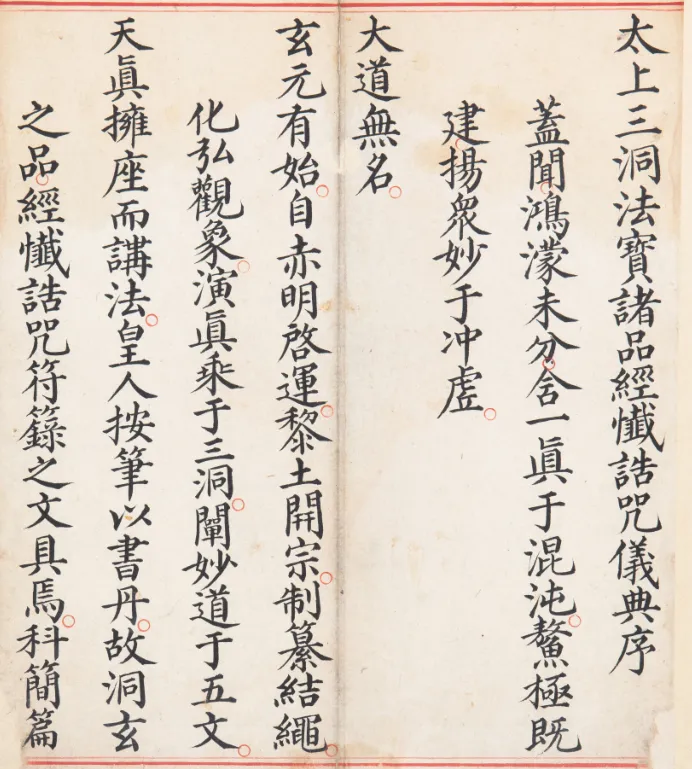 太上三洞法寶諸品經懺誥咒儀典序
蓋聞鴻濛未分含一眞于混沌鰲極既
建揚衆妙于冲虛
大道無名
玄元有始自赤明啓運黎土開宗制纂結繩
化弘觀象演眞乘于三洞闡妙道于五文
天眞擁座而講法皇人按筆以書丹故洞玄
之品經懺誥咒符籙之文具焉科簡篇